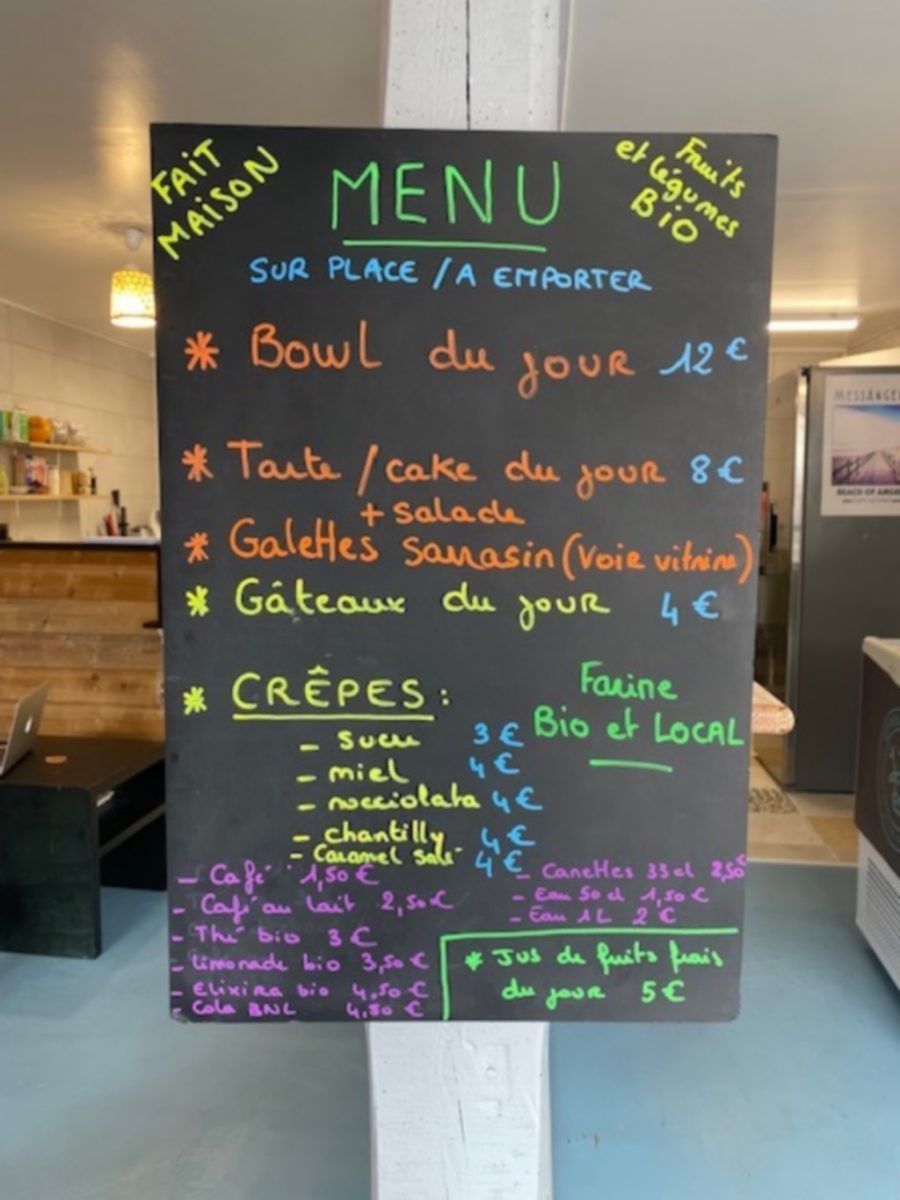 FAIT
MAISON
MENU
Fruits
et légumes
BIO
SUR PLACE / A EMPORTER
* Bowl du jour 12 €
* Tarte / cake du jour 8 €
+ salade
* Galettes sarrasin (voir vitrine)
* Gâteaux du jour 4 €
* CRÊPES :
Farine
Bio et LOCAL
- sucre 3 €
- miel 4 €
- nocciolata 4 €
- chantilly 4 €
- Caramel salé 4 €
- Café 1,50 €
- Café au lait 2,50 €
- Thé bio 3 €
- limonade bio 3,50 €
- Elixira bio 4,50 €
- Cola BNL 4,50 €
- Canettes 33 cl 2,50
- Eau 50 cl 1,50 €
- Eau 1 L 2 €
* Jus de fruits frais
du jour 5 €
BEACH OF